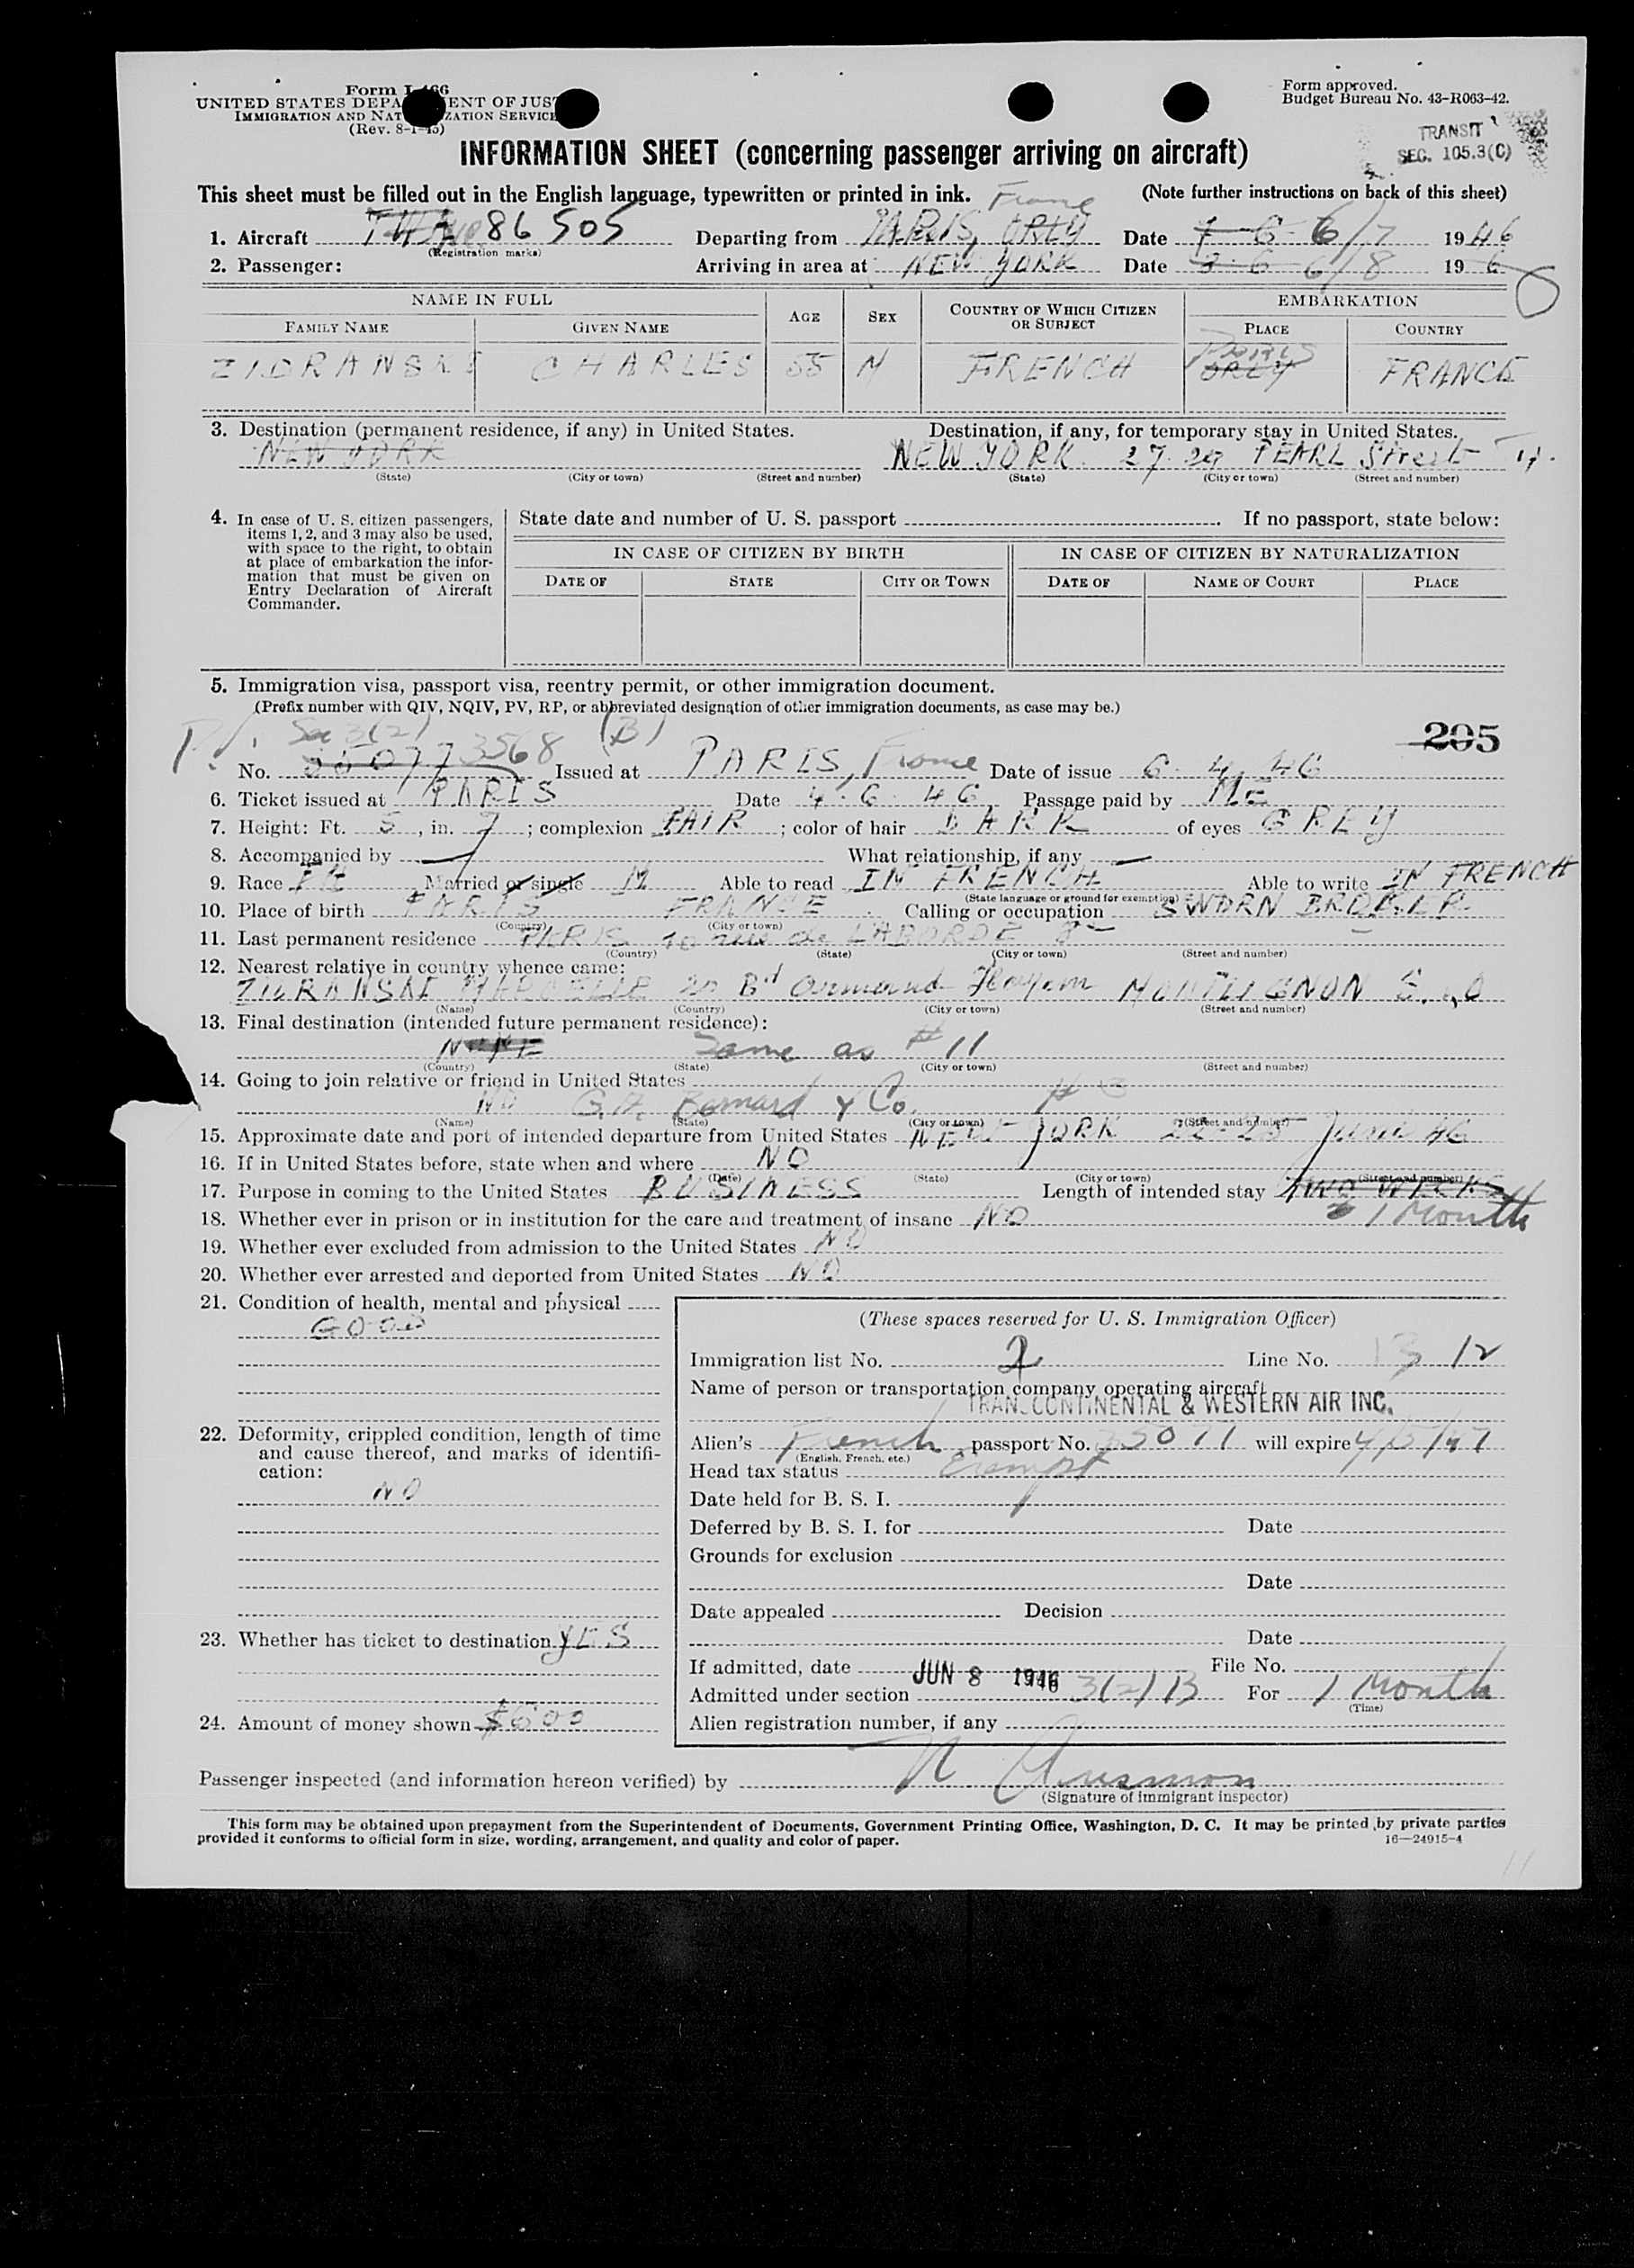 Form I-466
UNITED STATES DEPARTMENT OF JUSTICE
IMMIGRATION AND NATURALIZATION SERVICE
(Rev. 8-1-45)
Form approved.
Budget Bureau No. 43-R063-42.
TRANSIT
SEC. 105.3(C)
INFORMATION SHEET (concerning passenger arriving on aircraft)
This sheet must be filled out in the English language, typewritten or printed in ink. (Note further instructions on back of this sheet)
France
1. Aircraft 86505 Departing from PARIS, ORLY Date 6/7 1946
(Registration marks)
2. Passenger: Arriving in area at NEW YORK Date 6/8 19 6
NAME IN FULL AGE SEX COUNTRY OF WHICH CITIZEN OR SUBJECT EMBARKATION
FAMILY NAME GIVEN NAME PLACE COUNTRY
Paris
CHARLES 55 M FRENCH ORLY FRANCE
3. Destination (permanent residence, if any) in United States. Destination, if any, for temporary stay in United States.
NEW YORK NEW YORK 27.29 PEARL Street
(State) (City or town) (Street and number) (State) (City or town) (Street and number)
4. In case of U. S. citizen passengers, items 1, 2, and 3 may also be used, with space to the right, to obtain at place of embarkation the information that must be given on Entry Declaration of Aircraft Commander.
State date and number of U. S. passport If no passport, state below:
IN CASE OF CITIZEN BY BIRTH IN CASE OF CITIZEN BY NATURALIZATION
DATE OF STATE CITY OR TOWN DATE OF NAME OF COURT PLACE
5. Immigration visa, passport visa, reentry permit, or other immigration document.
(Prefix number with QIV, NQIV, PV, RP, or abbreviated designation of other immigration documents, as case may be.)
Sec 3(2) (B) 205
No. 3568 Issued at PARIS, France Date of issue 6.4.46
6. Ticket issued at PARIS Date 4.6.46 Passage paid by ME
7. Height: Ft. 5, in. 7; complexion FAIR; color of hair DARK of eyes GREY
8. Accompanied by — What relationship, if any —
9. Race Married or single M Able to read IN FRENCH Able to write IN FRENCH
(State language or ground for exemption)
10. Place of birth PARIS FRANCE Calling or occupation SWORN BROKER
(Country) (City or town)
11. Last permanent residence PARIS 10 rue de LABORDE 8
(Country) (State) (City or town) (Street and number)
12. Nearest relative in country whence came:
20 Bd Armand
(Name) (Country) (City or town) (Street and number)
13. Final destination (intended future permanent residence):
Same as #11
(Country) (State) (City or town) (Street and number)
14. Going to join relative or friend in United States
NO Bernard & Co. # 3
(Name) (State) (City or town) (Street and number)
15. Approximate date and port of intended departure from United States NEW YORK 46
16. If in United States before, state when and where NO
(Date) (State) (City or town) (Street and number)
17. Purpose in coming to the United States BUSINESS Length of intended stay TWO WEEKS
1 Month
18. Whether ever in prison or in institution for the care and treatment of insane NO
19. Whether ever excluded from admission to the United States NO
20. Whether ever arrested and deported from United States NO
21. Condition of health, mental and physical
GOOD
22. Deformity, crippled condition, length of time and cause thereof, and marks of identification:
NO
23. Whether has ticket to destination YES
24. Amount of money shown $600
(These spaces reserved for U. S. Immigration Officer)
Immigration list No. 2 Line No. 13 12
Name of person or transportation company operating aircraft
TRANSCONTINENTAL & WESTERN AIR INC.
Alien's French passport No. 35077 will expire 4/5/47
(English, French, etc.)
Head tax status Exempt
Date held for B. S. I.
Deferred by B. S. I. for Date
Grounds for exclusion
Date
Date appealed Decision
Date
If admitted, date JUN 8 1946 File No.
Admitted under section 3(2)B For 1 Month
(Time)
Alien registration number, if any
Passenger inspected (and information hereon verified) by
(Signature of immigrant inspector)
This form may be obtained upon prepayment from the Superintendent of Documents, Government Printing Office, Washington, D. C. It may be printed by private parties
provided it conforms to official form in size, wording, arrangement, and quality and color of paper. 16—24915-4